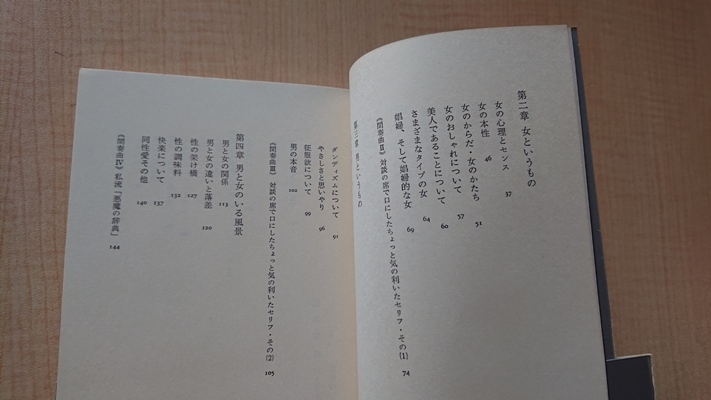 第二章 女というもの
女の心理とセンス 37
女の本性 46
女のからだ・女のかたち 51
女のおしゃれについて 57
美人であることについて 60
さまざまなタイプの女 64
娼婦、そして娼婦的な女 69
《間奏曲Ⅱ》 対談の席で口にしたちょっと気の利いたセリフ・その(1) 74
第三章 男というもの
ダンディズムについて 91
やさしさと思いやり 96
征服欲について 99
男の本音 102
《間奏曲Ⅲ》 対談の席で口にしたちょっと気の利いたセリフ・その(2) 105
第四章 男と女のいる風景
男と女の関係 113
男と女の違いと落差 120
性の架け橋 127
性の調味料 132
快楽について 137
同性愛その他 140
《間奏曲Ⅳ》 私流「悪魔の辞典」 144